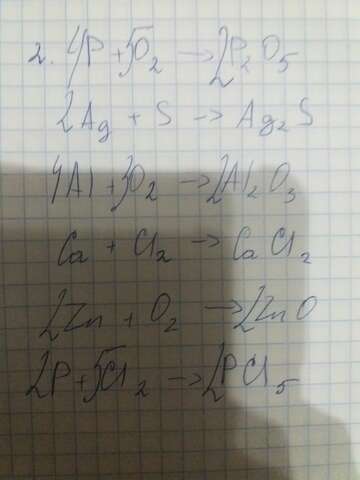 2. 4P + 5O₂ → 2P₂O₅
2Ag + S → Ag₂S
4Al + 3O₂ → 2Al₂O₃
Ca + Cl₂ → CaCl₂
2Zn + O₂ → 2ZnO
2P + 5Cl₂ → 2PCl₅